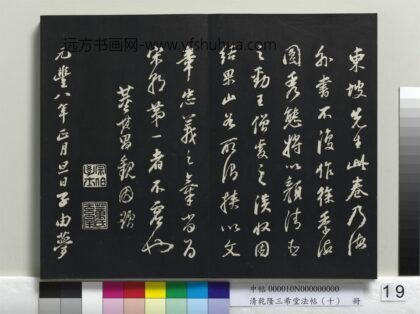 东坡先生此卷乃海
外書不復作徐季海
圓秀態將以顏清臣
之勁王僧虔之淡收因
結果山谷所謂挾以文
章忠義之氣當為
宋朝第一者不虛也
董其昌觀因題
元豐八年正月旦日子由夢
远方书画网-www.yfshuhua.com
中帖 000010N000000000
清乾隆三希堂法帖（十） 冊
19